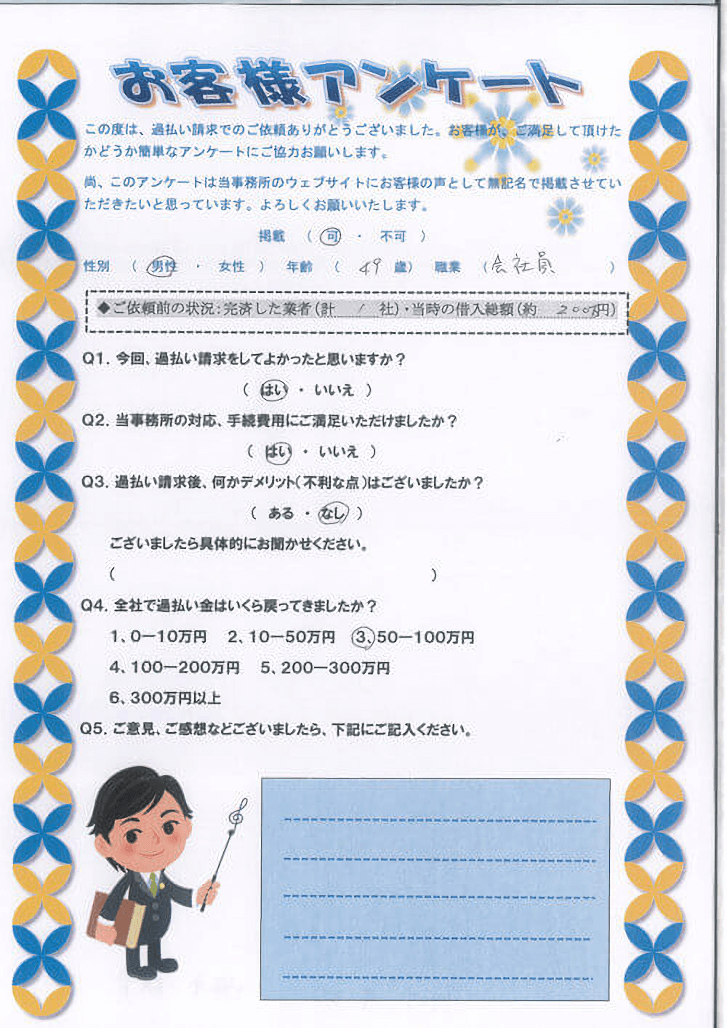 お客様アンケート
この度は、過払い請求でのご依頼ありがとうございました。お客様が、ご満足して頂けた
かどうか簡単なアンケートにご協力お願いします。
尚、このアンケートは当事務所のウェブサイトにお客様の声として無記名で掲載させてい
ただきたいと思っています。よろしくお願いいたします。
掲載 ( 可 ・ 不可 )
性別 ( 男性 ・ 女性 ) 年齢 ( 49 歳) 職業 (会社員 )
◆ご依頼前の状況:完済した業者(計 1 社)・当時の借入総額(約 200万円)
Q1. 今回、過払い請求をしてよかったと思いますか?
( はい ・ いいえ )
Q2. 当事務所の対応、手続費用にご満足いただけましたか?
( はい ・ いいえ )
Q3. 過払い請求後、何かデメリット(不利な点)はございましたか?
( ある ・ なし )
ございましたら具体的にお聞かせください。
( )
Q4. 全社で過払い金はいくら戻ってきましたか?
1、0ー10万円 2、10ー50万円 3、50ー100万円
4、100ー200万円 5、200ー300万円
6、300万円以上
Q5. ご意見、ご感想などございましたら、下記にご記入ください。